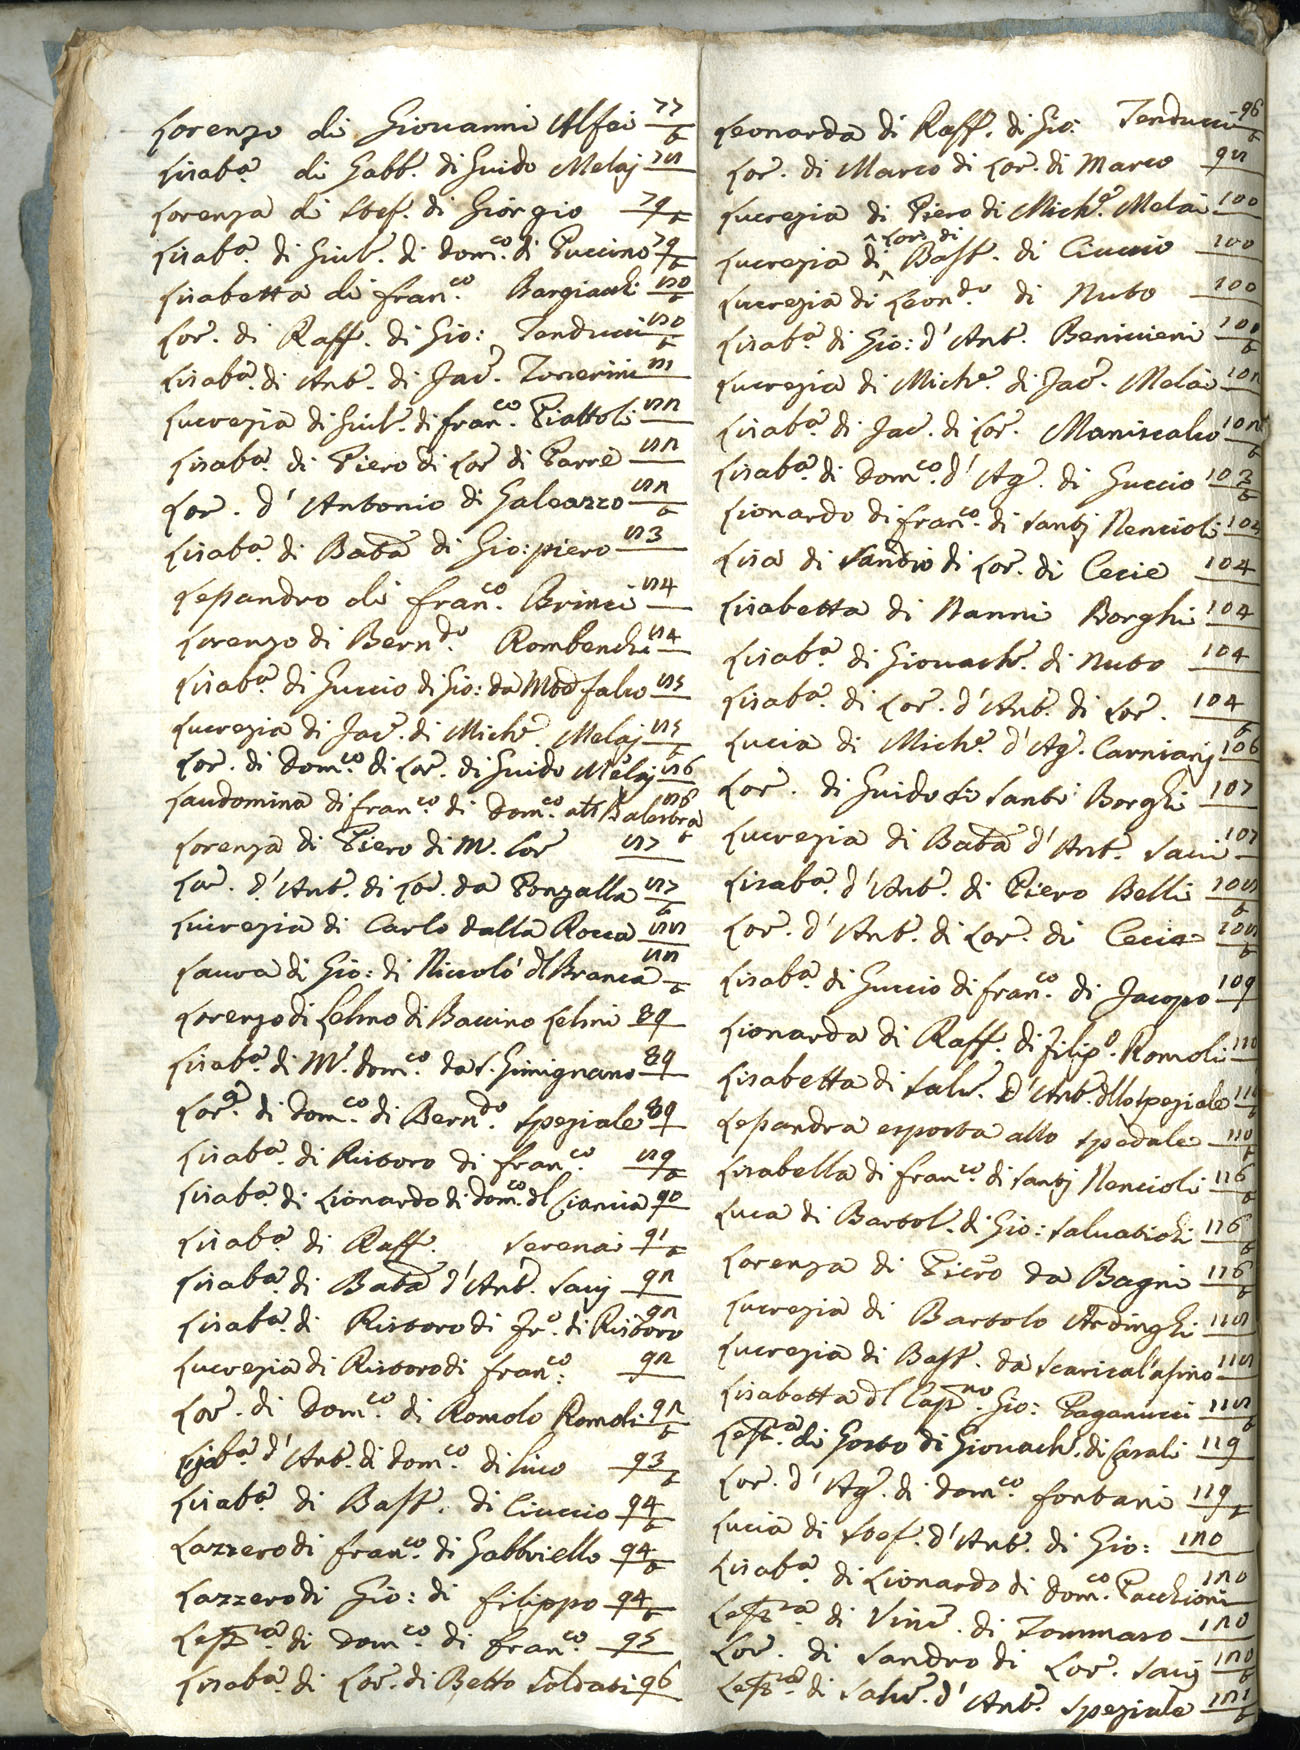 Lorenzo di Giovanni Alfei 77 t
Lisab.a di Gabb. di Guido Melaj 78
Lorenza di Stef. di Giorgio 79 t
Lisab.a di Giul. di Dom.co di Puccino 79 t
Lisabetta di Fran.co Bargiachi 80 t
Lor. di Raff. di Gio: Tenducci 80 t
Lisab.a di Ant. di Jac. 81
Lucrezia di Giul. di Fran.co Piattoli 82
Lisab.a di Piero di Lor di Parrè 82
Lor. d'Antonio di Galeazzo 82 t
Lisab.a di Bab.a di Gio: piero 83
Lessandro di Fran.co Brinci 84
Lorenzo di Bern.do Rombenchi 84
Lisab.a di Guccio di Gio: da falco 85
Lucrezia di Jac. di Mich. Melaj 85 t
Lor. di Dom.co di Lor. di Guido Melaj 86
Laudomina di Fran.co di Dom.co Balestra 86 t
Lorenza di Piero di M. Lor 87
Lor. d'Ant. di Lor. da Ponzalla 87 t
Lucrezia di Carlo dalla Rocca 88
Laura di Gio: di Niccolò dl Branca 88 t
Lorenzo di Lelmo di Baccino Lelmi 89
Lisab.a di M. Dom.co da S. Gimignano 89
Lor.a di Dom.co di Bern.do speziale 89
Lisab.a di Ristoro di Fran.co 89 t
Lisab.a di Lionardo di Dom.co dl Ciancia 90
Lisab.a di Raff. Serenai 91 t
Lisab.a di Bab.a d'Ant. Savj 92
Lisab.a di Ristoro di Fr.o di Ristoro 92
Lucrezia di Ristoro di Fran.co: 92
Lor. di Dom.co di Romolo Romoli 92 t
d'Ant. di Dom.co di Luco 93 t
Lisab.a di Bast. di Ciuccio 94 t
Lazzero di Fran.co di Gabbriello 94 t
Lazzero di Gio: di Filippo 94 t
Less.ra di Dom.co di Fran.co 95
Lisab.a di Lor. di Betto soldati 96
Leonarda di Raff. di Gio: Tenducci 96 t
Lor. di Marco di Lor. di Marco 98
Lucrezia di Piero di Mich. Melai 100
Lucrezia di ^Lor. di Bast. di Ciuccio 100
Lucrezia di Leon.do di Nuto 100
Lisab.a di Gio: d'Ant. Benivieni 100 t
Lucrezia di Mich. di Jac. Melai 102
Lisab.a di Jac. di Lor. Maniscalco 102 t
Lisab.a di Dom.co d'Ag. di Guccio 103 t
Lionardo di Fran.co di Santj Nencioli 104
Lisa di Santo di Lor. di Cecie 104
Lisabetta di Nanni Borghi 104
Lisab.a di Giovach. di Nuto 104
Lisab.a di Lor. d'Ant. di Lor. 104 t
Lucia di Mich. d'Ag. Carnianj 106
Lor. di Guido di Santi Borghi 107
Lucrezia di Bab.a d'Ant. Savi 107
Lisab.a d'Ant. di Piero Belli 108 t
Lor. d'Ant. di Lor. di Cecia 108 t
Lisab.a di Guccio di Fran.co di Jacopo 109
Lionarda di Raff. di Filip.o Romoli 110
Lisabetta di Salv. d'Ant. dllo speziale 110 t
Lessandra esposta allo spedale 110 t
Lisabella di Fran.co di Santj Nencioli 116 t
Luca di Bartol. di Gio: Salvatichi 116 t
Lorenza di Piero da Bagni 116 t
Lucrezia di Bartolo Ardinghi 118
Lucrezia di Bast. da Scarical'asino 118
Lisabetta dl Cap.no Gio: Paganucci 118 t
Less.a di Gosto di Giovach. di Casali 119
Lor. d'Ag. di Dom.co Fontani 119 t
Lucia di Stef. d'Ant. di Gio: 120
Lisab.a di Lionardo di Dom.co Pacchioni 120
Less.ra di Vinc. di Tommaso 120
Lor. di Sandro di Lor. Savj 120 t
Less.ra di Salv. d'Ant. speziale 121 t